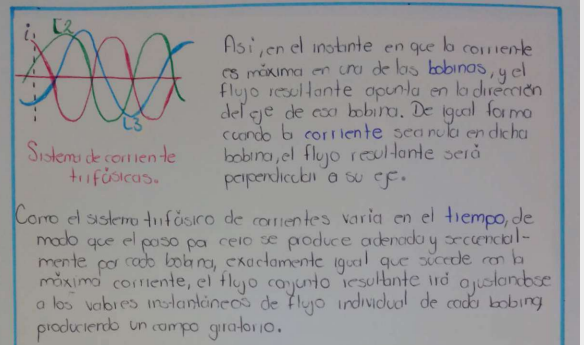 i
L2
L3
Sistema de corriente
trifásicas.
Asi, en el instante en que la corriente
es máxima en una de las bobinas, y el
flujo resultante apunta en la dirección
del eje de esa bobina. De igual forma
cuando la corriente sea nula en dicha
bobina, el flujo resultante será
perpendicular a su eje.
Como el sistema trifásico de corrientes varia en el tiempo, de
modo que el paso por cero se produce ordenada y secuencial-
mente por cada bobina, exactamente igual que sucede con la
máxima corriente, el flujo conjunto resultante irá ajustandose
a los valores instantáneos de flujo individual de cada bobina,
produciendo un campo giratorio.